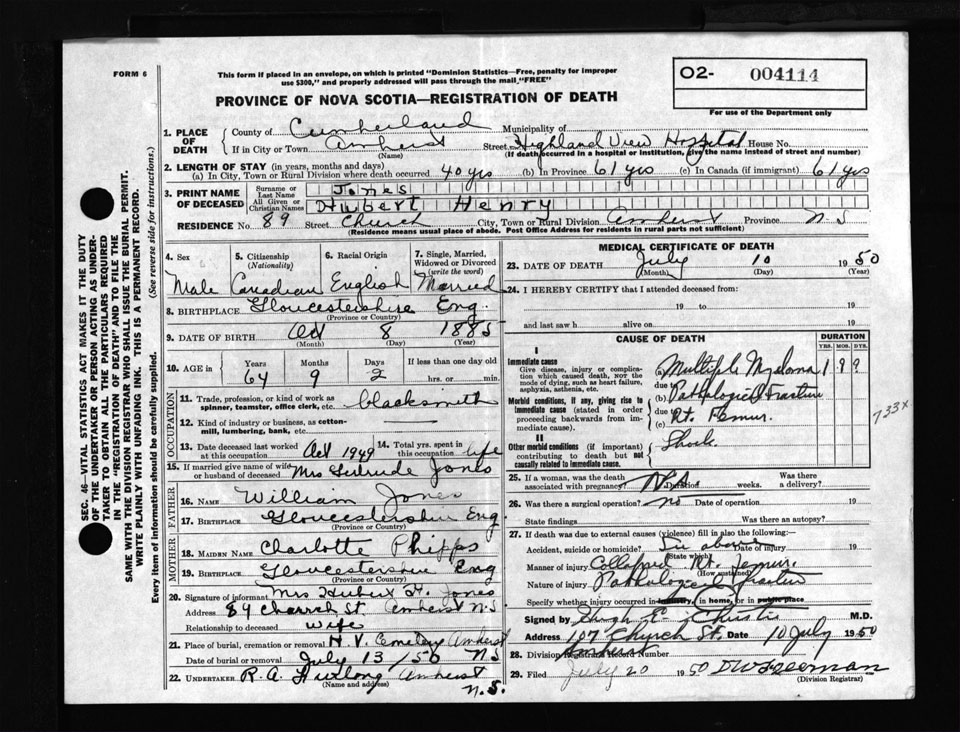 FORM 6
This form if placed in an envelope, on which is printed "Dominion Statistics—Free, penalty for improper
use $300," and properly addressed will pass through the mail "FREE"
PROVINCE OF NOVA SCOTIA—REGISTRATION OF DEATH
O2- 004114
For use of the Department only
1. PLACE OF DEATH County of Cumberland Municipality of
If in City or Town Amherst (Name) Street Highland View Hospital House No.
(If death occurred in a hospital or institution, give the name instead of street and number)
2. LENGTH OF STAY (in years, months and days)
(a) In City, Town or Rural Division where death occurred 40 yrs (b) In Province 61 yrs (c) In Canada (if immigrant) 61 yrs
3. PRINT NAME OF DECEASED Surname or Last Name Jones
All Given or Christian Names Hubert Henry
RESIDENCE No. 89 Street Church City, Town or Rural Division Amherst Province N S
(Residence means usual place of abode. Post Office Address for residents in rural parts not sufficient)
4. Sex 5. Citizenship (Nationality) 6. Racial Origin 7. Single, Married, Widowed or Divorced (write the word)
Male Canadian English Married
8. BIRTHPLACE Gloucestershire Eng.
(Province or Country)
9. DATE OF BIRTH Oct 8 1885
(Month) (Day) (Year)
10. AGE in Years Months Days If less than one day old
64 9 2 hrs. or min.
OCCUPATION
11. Trade, profession, or kind of work as spinner, teamster, office clerk, etc. blacksmith
12. Kind of industry or business, as cotton-mill, lumbering, bank, etc.
13. Date deceased last worked at this occupation Oct 1949 14. Total yrs. spent in this occupation life
15. If married give name of wife or husband of deceased Mrs Gertrude Jones
FATHER
16. NAME William Jones
17. BIRTHPLACE Gloucestershire Eng
(Province or Country)
MOTHER
18. MAIDEN NAME Charlotte Phipps
19. BIRTHPLACE Gloucestershire Eng
(Province or Country)
20. Signature of informant Mrs Hubert H. Jones
Address 89 Church St. Amherst N.S
Relationship to deceased wife
21. Place of burial, cremation or removal H. V. Cemetery Amherst
Date of burial or removal July 13/50 NS
22. UNDERTAKER R. A. Furlong Amherst
(Name and address) N.S.
MEDICAL CERTIFICATE OF DEATH
23. DATE OF DEATH July 10 1950
(Month) (Day) (Year)
24. I HEREBY CERTIFY that I attended deceased from:
19 to 19
and last saw h alive on 19
CAUSE OF DEATH DURATION
YRS. MOS. DYS.
I
Immediate cause
Give disease, injury or complication which caused death, NOT the mode of dying, such as heart failure, asphyxia, asthenia, etc.
(a) Multiple Myeloma 1 ? ?
due to
Morbid conditions, if any, giving rise to immediate cause (stated in order proceeding backwards from immediate cause).
(b) Pathological Fracture
due to
(c) Rt. Femur.
II
Other morbid conditions (if important) contributing to death but not causally related to immediate cause.
Shock.
733x
25. If a woman, was the death associated with pregnancy? Duration weeks. Was there a delivery?
26. Was there a surgical operation? no Date of operation 19
State findings Was there an autopsy?
27. If death was due to external causes (violence) fill in also the following:
Accident, suicide or homicide? See above Date of injury 19
(State which)
Manner of injury Collapsed Rt. Femur.
(How sustained)
Nature of injury Pathological fracture
Specify whether injury occurred in industry, in home, or in public place
Signed by Christie M.D.
Address 107 Church St. Date 10 July 1950
Amherst
28. Division Registrar's Record Number
29. Filed July 20 1950
(Division Registrar)
SEC. 46—VITAL STATISTICS ACT MAKES IT THE DUTY
OF THE UNDERTAKER OR PERSON ACTING AS UNDER-
TAKER TO OBTAIN ALL THE PARTICULARS REQUIRED
IN THE "REGISTRATION OF DEATH" AND TO FILE THE
SAME WITH THE DIVISION REGISTRAR WHO SHALL ISSUE THE BURIAL PERMIT.
WRITE PLAINLY WITH UNFADING INK. THIS IS A PERMANENT RECORD.
Every item of information should be carefully supplied. (See reverse side for instructions.)